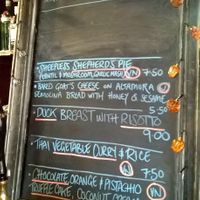 SHEEPLESS SHEPHERD'S PIE
LENTIL & MUSHROOM, GARLIC MASH VN 7·50
BAKED GOAT'S CHEESE ON ALTAMURA V
SEMOLINA BREAD WITH HONEY & SESAME
5·50
DUCK BREAST WITH RISOTTO
9·00
THAI VEGETABLE CURRY & RICE
VN 7·50
CHOCOLATE, ORANGE & PISTACHIO
TRUFFLE CAKE, COCONUT CREAM VN